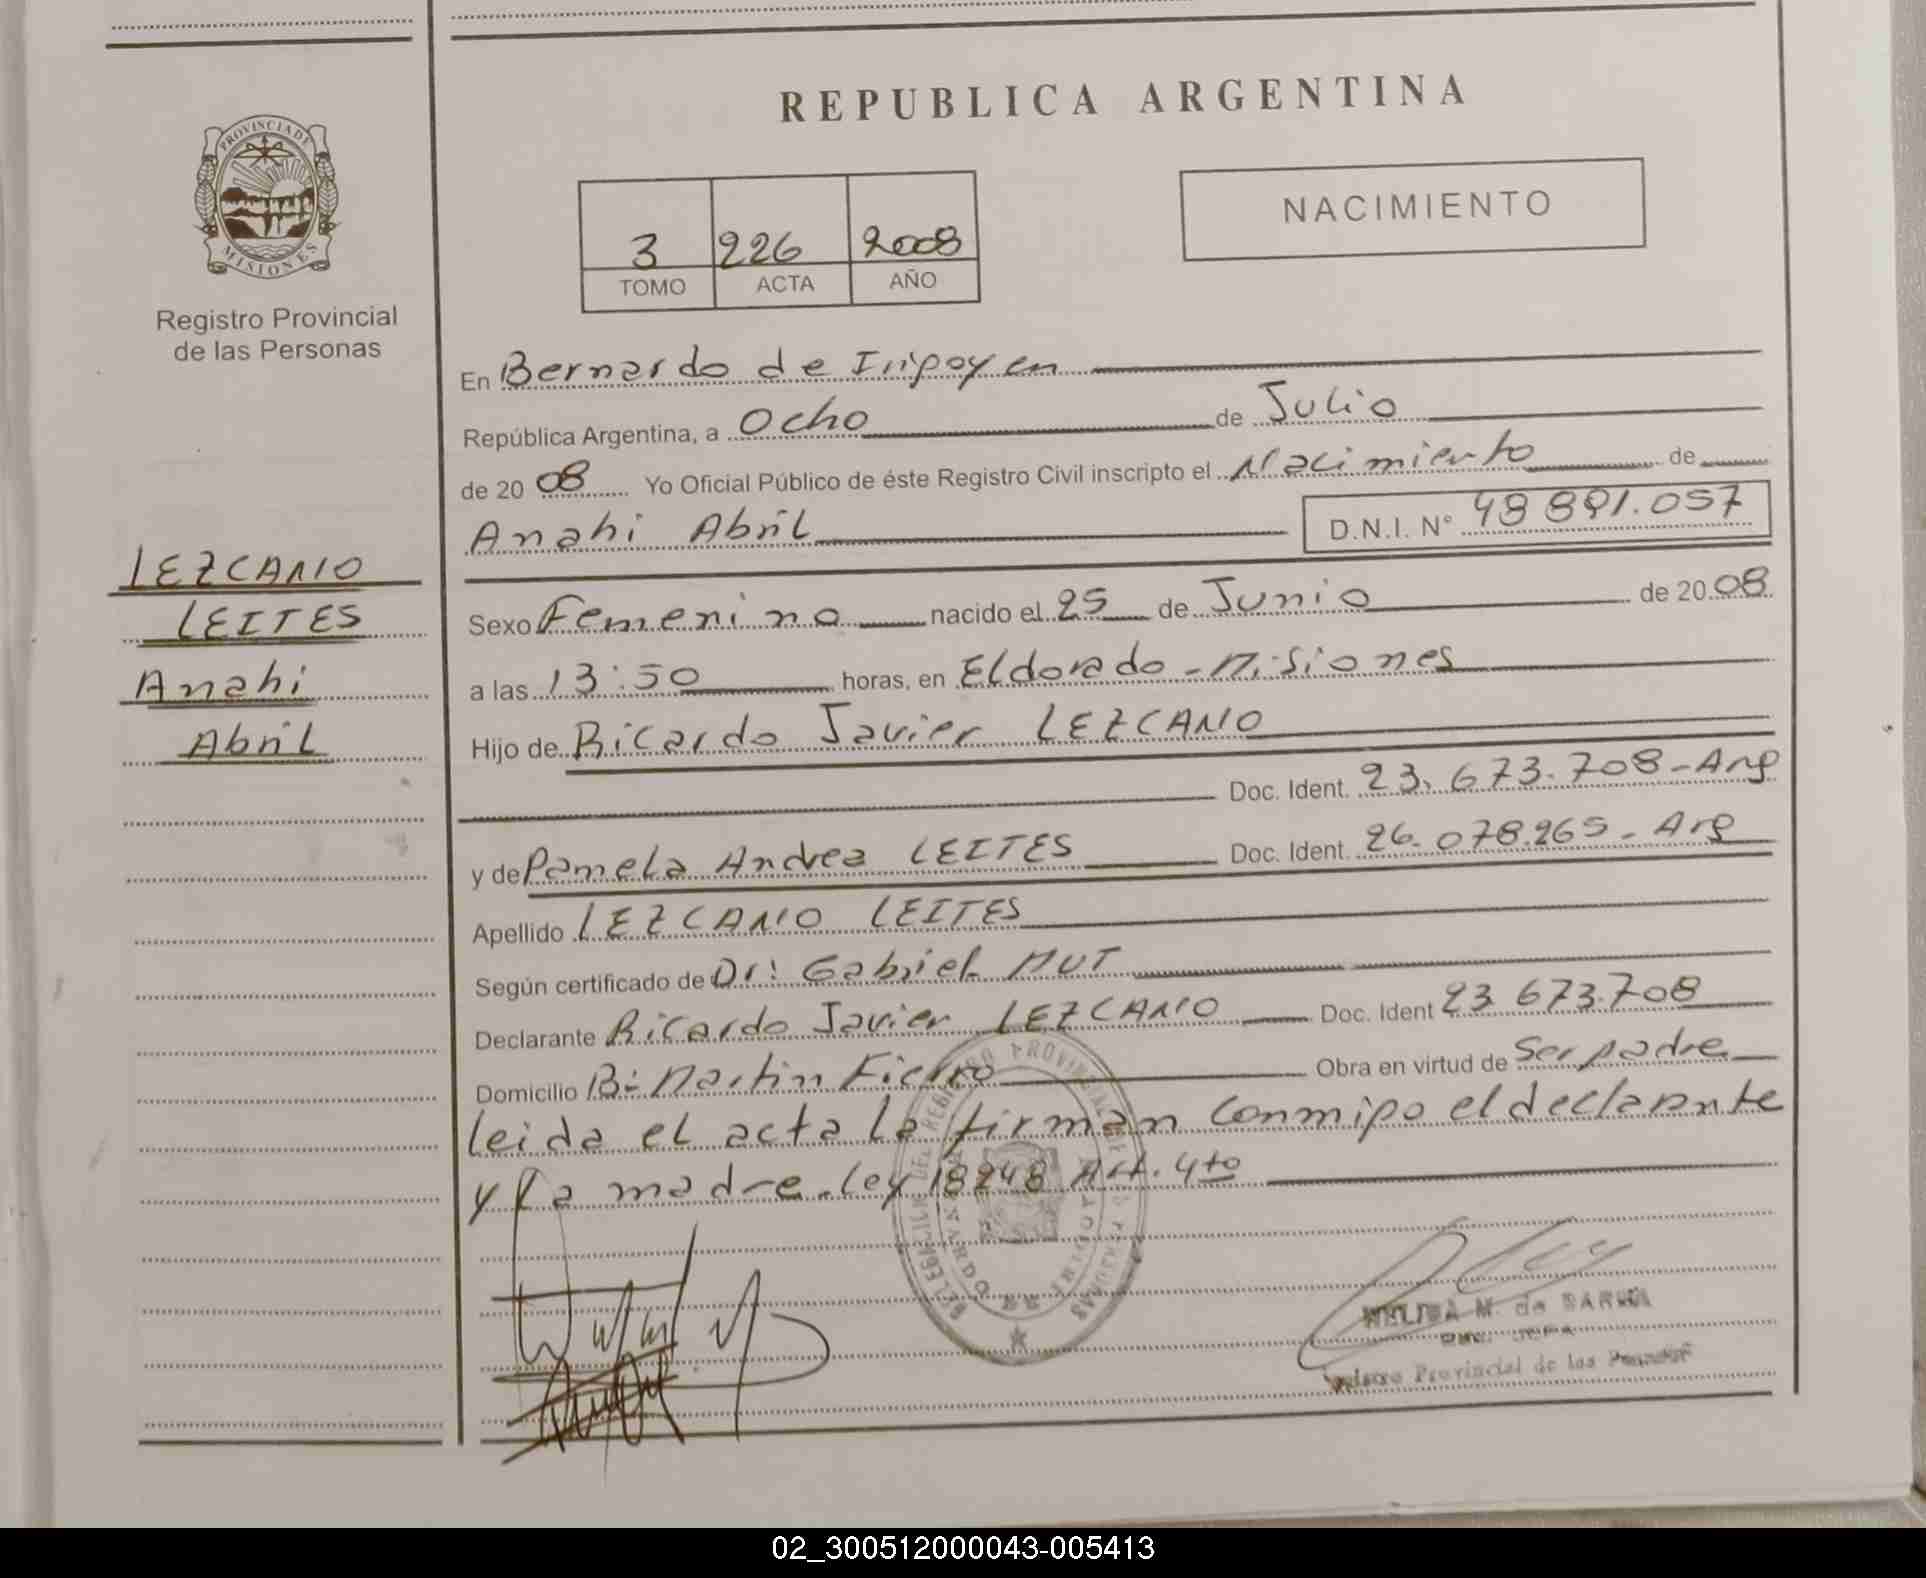 REPUBLICA ARGENTINA
PROVINCIA DE
MISIONES
Registro Provincial
de las Personas
3 226 2008
TOMO ACTA AÑO
NACIMIENTO
En Bernardo de Irigoyen
República Argentina, a Ocho de Julio
de 20 08 Yo Oficial Público de éste Registro Civil inscripto el Nacimiento de
Anahi Abril D.N.I. N° 48 891.057
LEZCANO
LEITES
Anahi
Abril
Sexo Femenino nacido el 25 de Junio de 20 08
a las 13:50 horas, en Eldorado - Misiones
Hijo de Ricardo Javier LEZCANO
Doc. Ident. 23.673.708 - Arg
y de Pamela Andrea LEITES Doc. Ident. 26.078.265 - Arg
Apellido LEZCANO LEITES
Según certificado de Dr: Gabriel MUT
Declarante Ricardo Javier LEZCANO Doc. Ident 23.673.708
Domicilio B: Martin Fierro Obra en virtud de Ser padre
leida el acta la firman conmigo el declarante
y la madre. Ley 18248 Art. 4to
DEL REGISTRO PROVINCIAL DE LAS PERSONAS
BERNARDO DE IRIGOYEN
M. de
Provincial de las
02_300512000043-005413